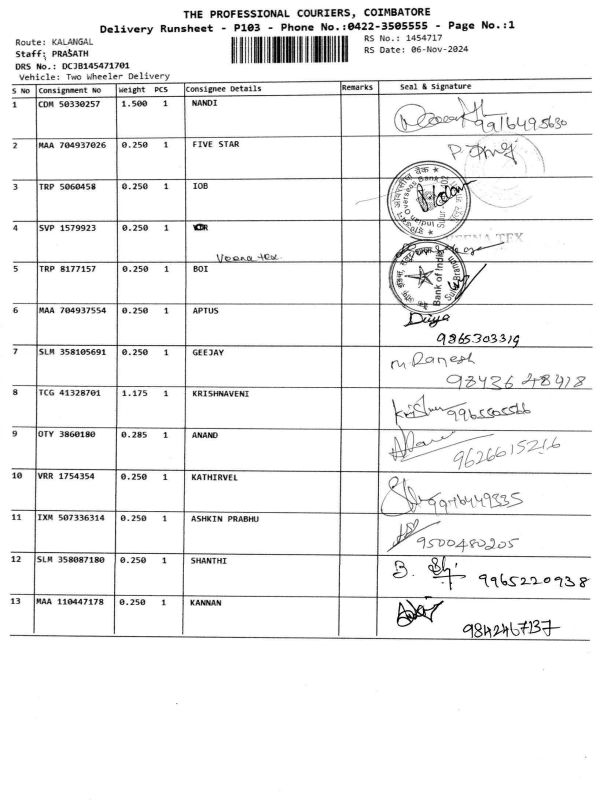 THE PROFESSIONAL COURIERS, COIMBATORE
Delivery Runsheet - P103 - Phone No.:0422-3505555 - Page No.:1
Route: KALANGAL
RS No.: 1454717
Staff: PRASATH
RS Date: 06-Nov-2024
DRS No.: DCJB145471701
Vehicle: Two Wheeler Delivery
S No Consignment No Weight PCS Consignee Details Remarks Seal & Signature
1 CDM 50330257 1.500 1 NANDI
9916495630
2 MAA 704937026 0.250 1 FIVE STAR
3 TRP 5060458 0.250 1 IOB
Indian Overseas Bank
Sulur
4 SVP 1579923 0.250 1
Veena tex.
VEENA TEX
5 TRP 8177157 0.250 1 BOI
Bank of India
6 MAA 704937554 0.250 1 APTUS
Divya
9865303319
7 SLM 358105691 0.250 1 GEEJAY
M. Ranesh
98436 48418
8 TCG 41328701 1.175 1 KRISHNAVENI
9965505566
9 OTY 3860180 0.285 1 ANAND
9626615216
10 VRR 1754354 0.250 1 KATHIRVEL
9976449335
11 IXM 507336314 0.250 1 ASHKIN PRABHU
9500480205
12 SLM 358087180 0.250 1 SHANTHI
B.
9965220938
13 MAA 110447178 0.250 1 KANNAN
9842467137